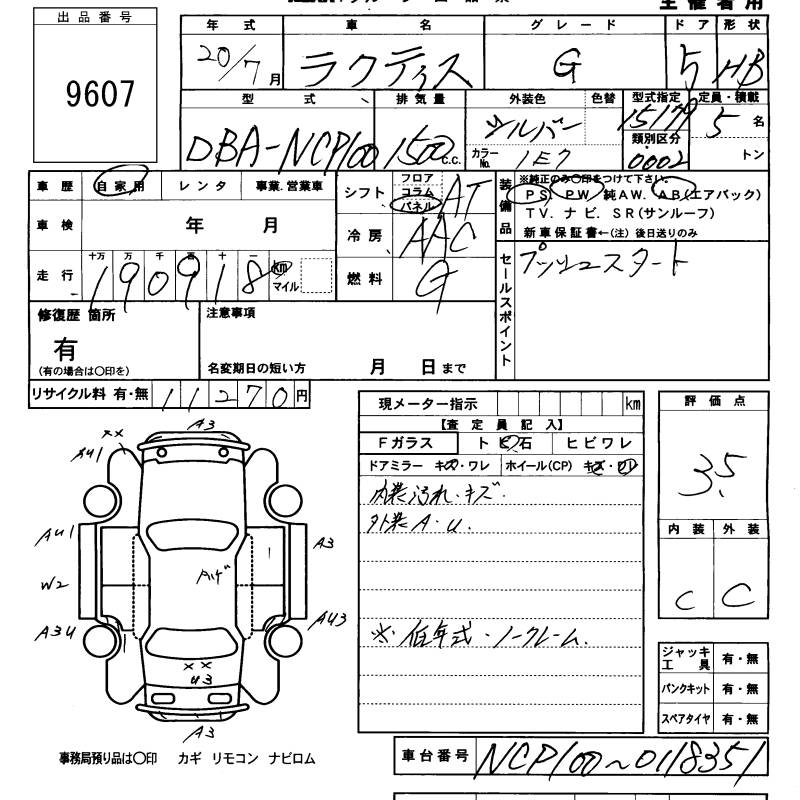 主催者用
出品番号
9607
年式 車名 グレード ドア 形状
20/7月 ラクティス G 5 HB
型式 排気量 外装色 色替 型式指定 定員・積載
DBA-NCP100 1500 C.C. シルバー 15179 5名
カラーNo. 1E7 類別区分 0002 トン
車歴 自家用 レンタ 事業.営業車
車検 年 月
走行 十万 万 千 百 十 一
190918 km マイル
シフト フロア コラム パネル AT
冷房 AAC
燃料 G
装備品
※純正のみ〇印をつけて下さい。
PS. PW. 純AW. AB(エアバック)
TV. ナビ. SR(サンルーフ)
新車保証書←(注)後日送りのみ
セールスポイント
プッシュスタート
修復歴 箇所
有
(有の場合は〇印を)
注意事項
名変期日の短い方 月 日まで
リサイクル料 有・無 11270円
現メーター指示 km
【査定員記入】
Fガラス トビ石 ヒビワレ
ドアミラー キズ・ワレ ホイール(CP) キズ・ワレ
内装汚れ・キズ.
外装A・U.
※低年式・ノークレーム.
評価点
3.5
内装 外装
C C
ジャッキ工具 有・無
パンクキット 有・無
スペアタイヤ 有・無
A3
××
AU1
AU1
A3
W2
Aハゲ
AU3
A3U
××
U3
A3
事務局預り品は〇印 カギ リモコン ナビロム
車台番号 NCP100~0118351